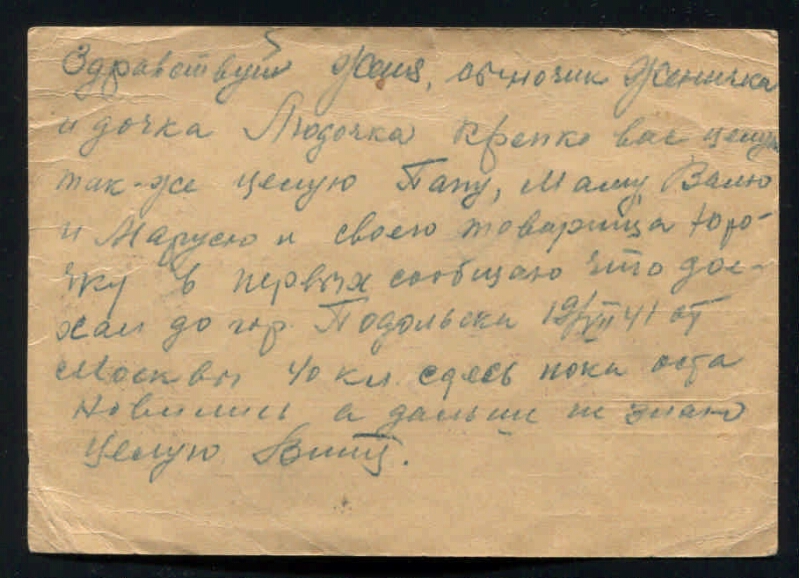 Здравствуй Женя, сыночик Женичка
и дочка Людочка крепко вас целую
так-же целую Папу, Маму Валю
и Марусю и своего товарища Юро-
чку в первых сообщаю что дое-
хал до гор. Подольска 19/VII 41 от
Москвы 40 кл. сдесь пока оста
новились а дальше не знаю
целую